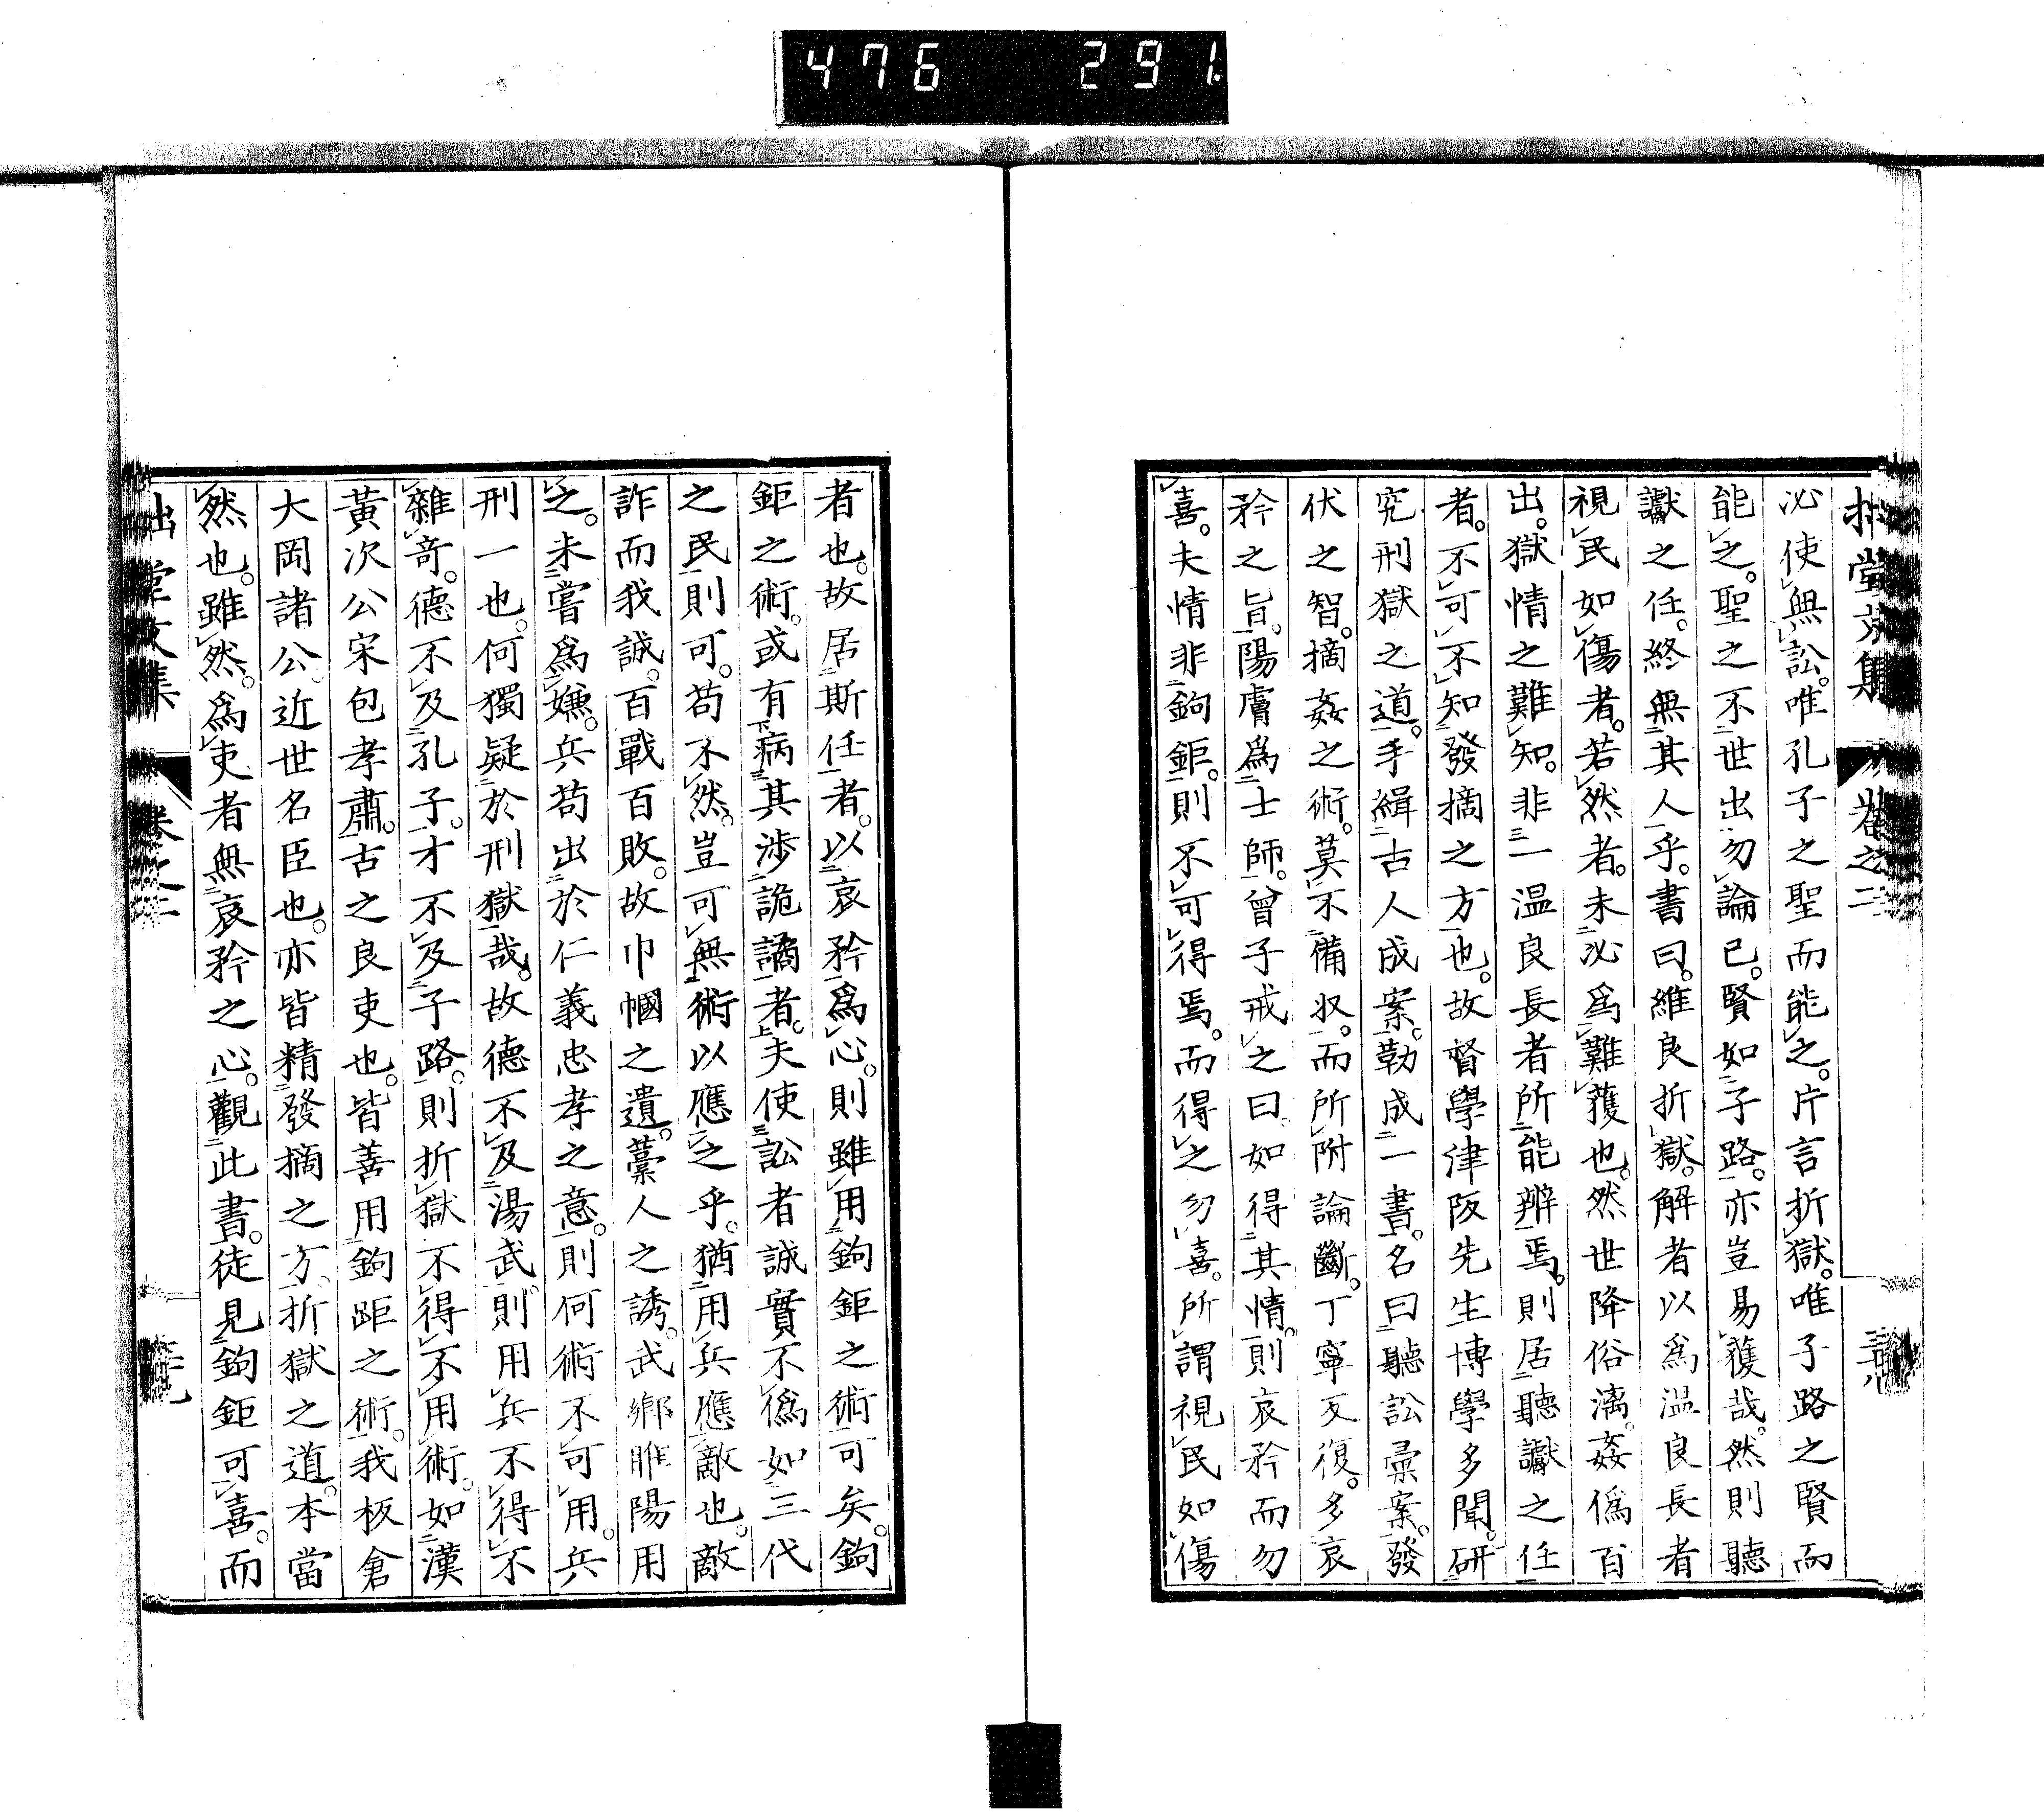 476 291.
拙堂文集 卷之二 三十八
必使無訟。唯孔子之聖而能之。片言折獄。唯子路之賢而
能之。聖之不世出勿論已。賢如子路。亦豈易獲哉。然則聽
讞之任。終無其人乎。書曰。維良折獄。解者以爲温良長者
視民如傷者。若然者。未必爲難獲也。然世降俗漓。姦僞百
出。獄情之難知。非一温良長者所能辨焉。則居聽讞之任
者。不可不知發摘之方也。故督學津阪先生博學多聞。研
究刑獄之道。手緝古人成案。勒成一書。名曰聽訟彙案。發
伏之智。摘姦之術。莫不備收。而所附論斷。丁寧反復。多哀
矜之旨。陽膚爲士師。曾子戒之曰。如得其情。則哀矜而勿
喜。夫情非鉤鉅。則不可得焉。而得之勿喜。所謂視民如傷
者也。故居斯任者。以哀矜爲心。則雖用鉤鉅之術可矣。鉤
鉅之術。或有病其涉詭譎者。夫使訟者誠實不僞如三代
之民。則可。苟不然。豈可無術以應之乎。猶用兵應敵也。敵
詐而我誠。百戰百敗。故巾幗之遺。藁人之誘。武鄉睢陽用
之。未嘗爲嫌。兵苟出於仁義忠孝之意。則何術不可用。兵
刑一也。何獨疑於刑獄哉。故德不及湯武。則用兵不得不
雜奇。德不及孔子。才不及子路。則折獄不得不用術。如漢
黃次公宋包孝肅。古之良吏也。皆善用鉤距之術。我板倉
大岡諸公。近世名臣也。亦皆精發摘之方。折獄之道。本當
然也。雖然。爲吏者無哀矜之心。觀此書。徒見鉤鉅可喜。而
拙堂文集 卷之二 三十九